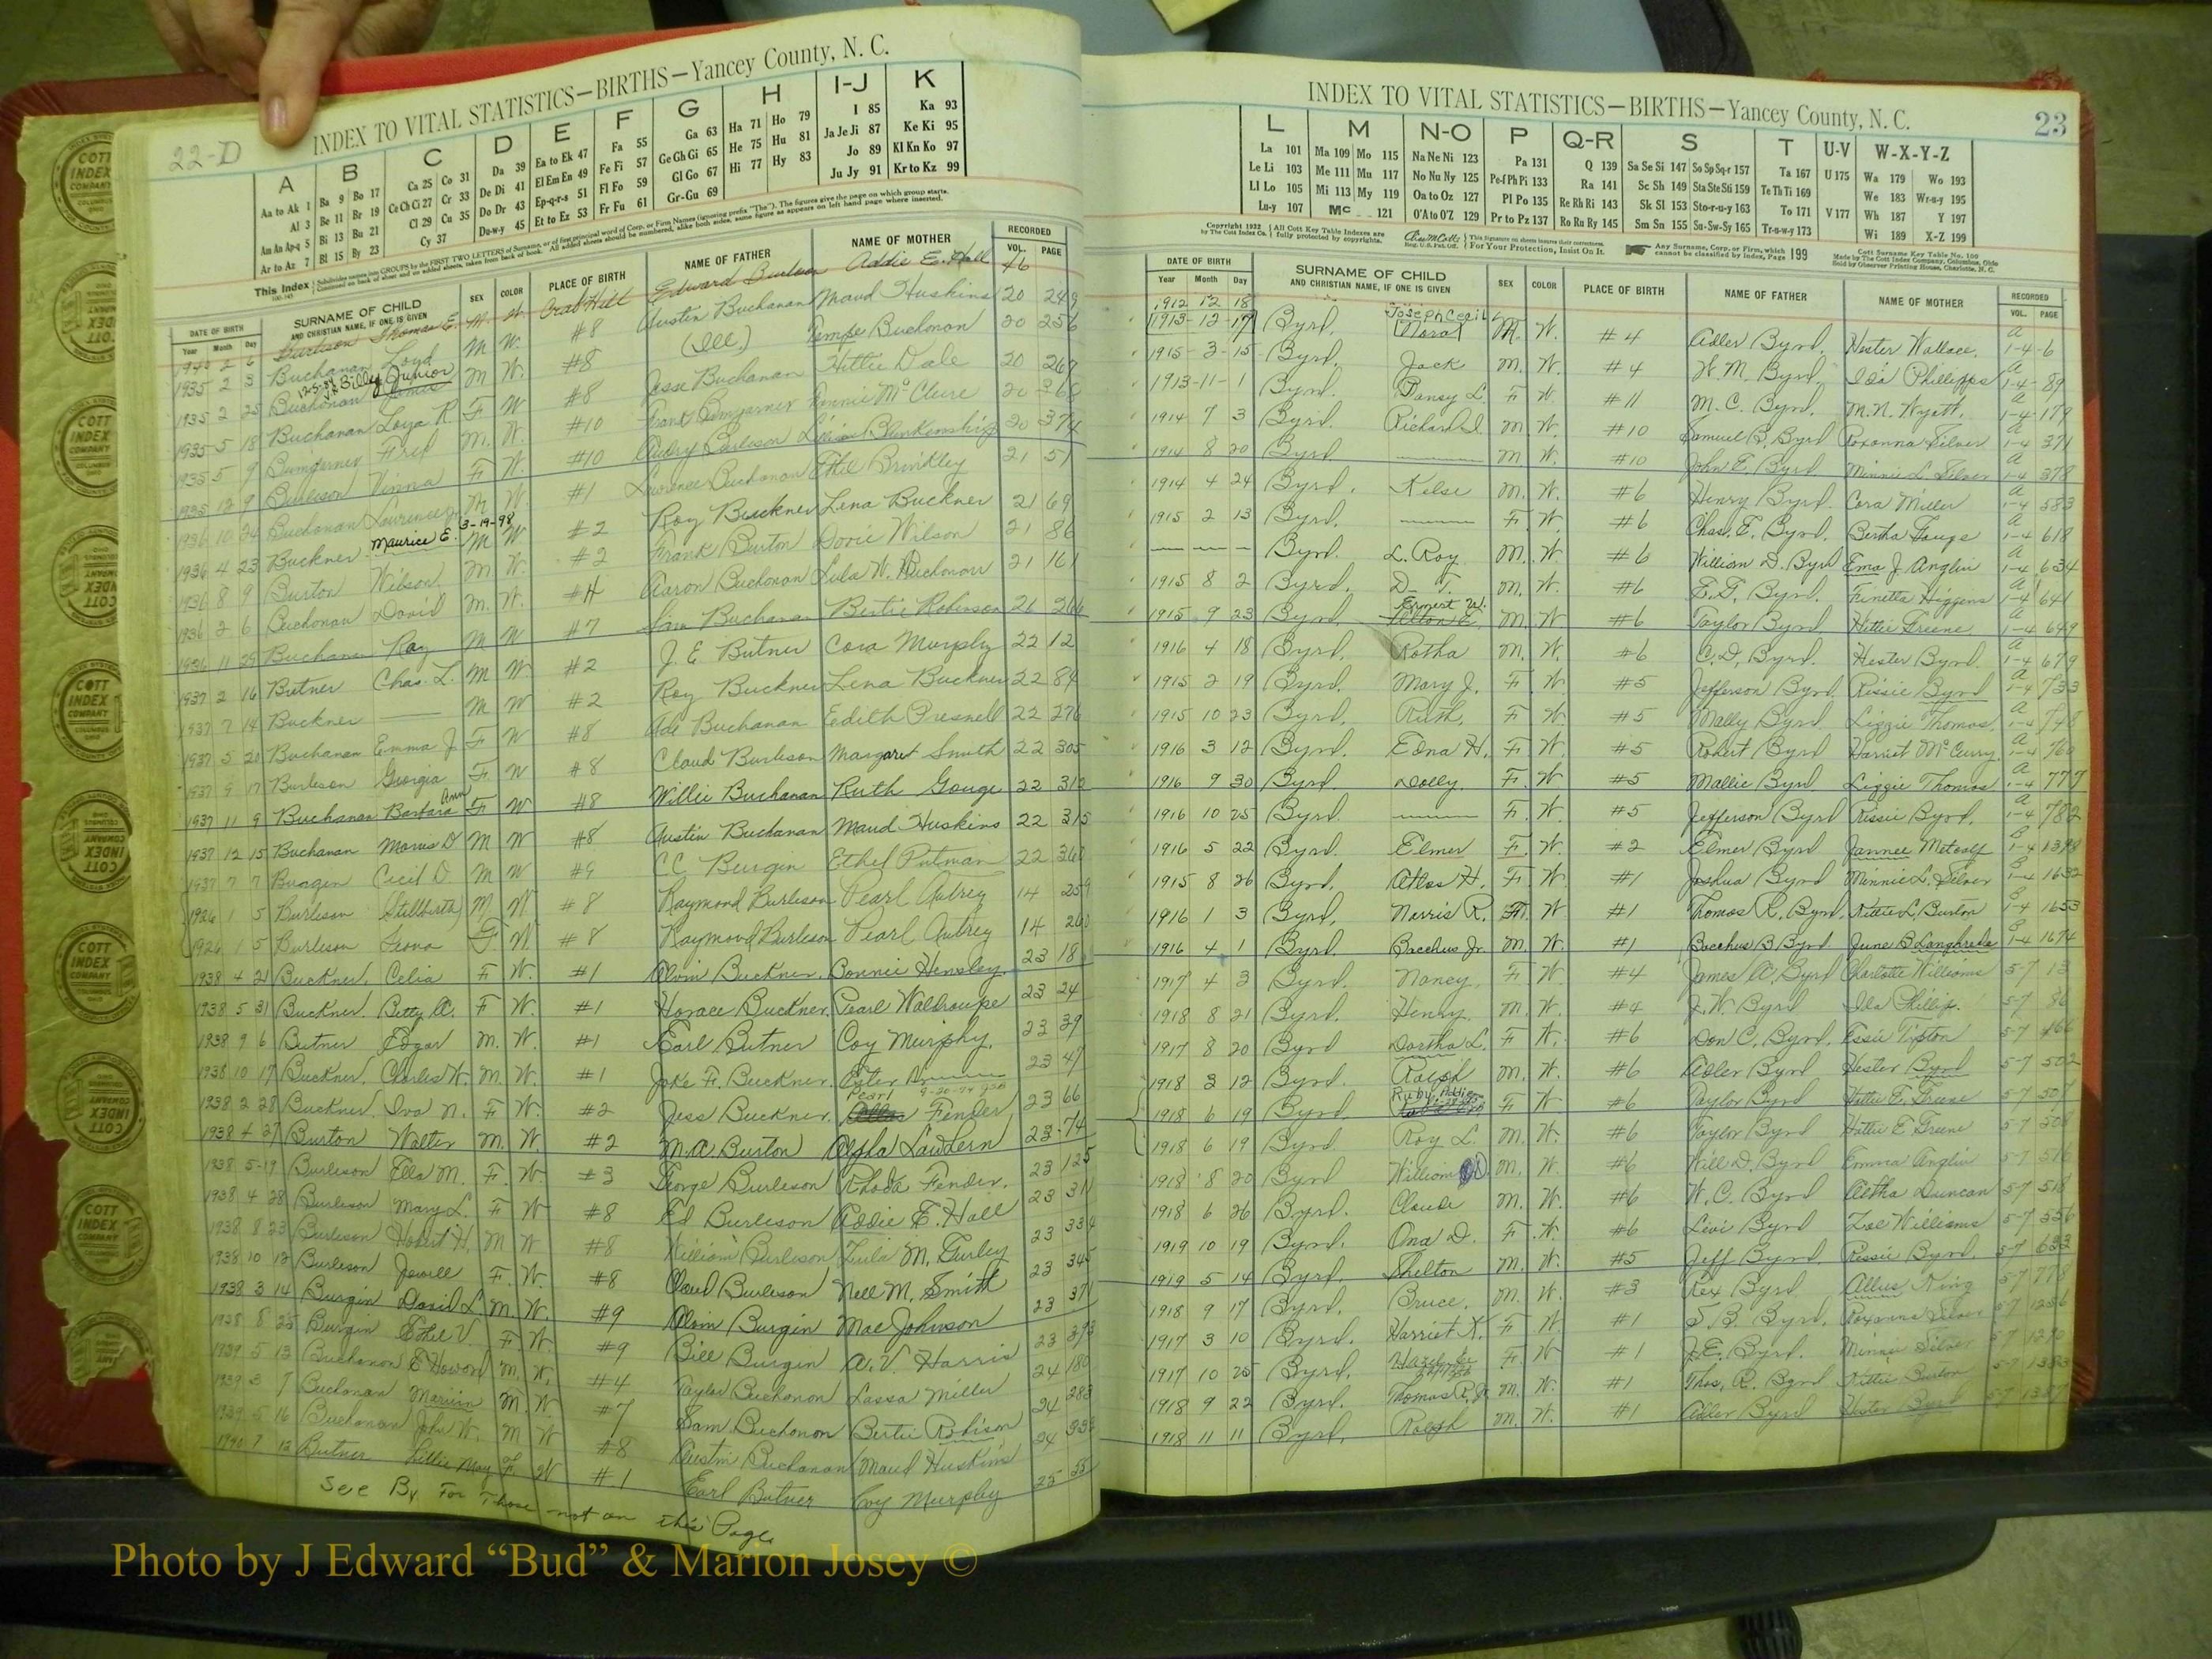 22-D
INDEX TO VITAL STATISTICS—BIRTHS—Yancey County, N. C.
A B C D E F G H I-J K
Aa to Ak 1 Ba 9 Bo 17 Ca 25 Co 31 Da 39 Ea to Ek 47 Fa 55 Ga 63 Ha 71 Ho 79 I 85 Ka 93
Al 3 Be 11 Br 19 Ce Ch Ci 27 Cr 33 De Di 41 El Em En 49 Fe Fi 57 Ge Gh Gi 65 He 75 Hu 81 Ja Je Ji 87 Ke Ki 95
Am An Ap-q 5 Bi 13 Bu 21 Cl 29 Cu 35 Do Dr 43 Ep-q-r-s 51 Fl Fo 59 Gl Go 67 Hi 77 Hy 83 Jo 89 Kl Kn Ko 97
Ar to Az 7 Bl 15 By 23 Cy 37 Du-w-y 45 Et to Ez 53 Fr Fu 61 Gr-Gu 69 Ju Jy 91 Kr to Kz 99
DATE OF BIRTH SURNAME OF CHILD AND CHRISTIAN NAME, IF ONE IS GIVEN SEX COLOR PLACE OF BIRTH NAME OF FATHER NAME OF MOTHER RECORDED
Year Month Day VOL. PAGE
Burleson Thomas E. M. W. Crab Hill Edward Burleson Addie E. Hall
1935 2 3 Buchanan Loyd M W. #8 Austin Buchanan Maud Huskins 20 249
1935 2 25 Buchanan Billy Junior M W. #8 (Ill.) Buchanan 20 256
1935 5 18 Buchanan F W #8 Jesse Buchanan Hettie Dale 20
1935 5 9 Bumgarner Fred M. W. #10 Frank Bumgarner McClure 20
1935 12 9 Burleson F W. #10 Burleson Blankenship 20 374
1936 10 24 Buchanan Lawrence M W. #1 Lawrence Buchanan Ethel Brinkley 21 51
1936 4 23 Buckner Maurice E. 3-19-98 M W #2 Roy Buckner Lena Buckner 21 69
1936 8 9 Burton Wilson M W. #2 Frank Burton Dovie Wilson 21 86
1936 2 6 Buchanan David M. W. #4 Aaron Buchanan Lula W. Buchanan 21 161
1936 11 Buchanan Ray M W #7 Sam Buchanan Bertie Robinson
1937 2 16 Butner Chas. L. M W. #2 J. E Butner Cora Murphy 22 12
1937 7 14 Buckner —— M W #2 Roy Buckner Lena Buckner 22 84
1937 5 20 Buchanan Emma J. F W #8 Ade Buchanan Edith Presnell 22 276
1937 9 17 Burleson Georgia F W #8 Claud Burleson Margaret Smith 22 305
1937 11 9 Buchanan Barbara Ann F W #8 Willie Buchanan Ruth Gouge 22 312
1937 12 15 Buchanan Morris D M W #8 Austin Buchanan Maud Huskins 22 315
1937 7 7 Burgin Cecil D. M W #9 CC Burgin Ethel Putman 22 360
1926 1 5 Burleson Stillbirth M W #8 Raymond Burleson Pearl Autrey 14 259
1926 1 5 Burleson Leona F W. #8 Raymond Burleson Pearl Autrey 14 260
1938 4 21 Buckner, Celia F W. #1 Alvin Buckner. Bonnie Hensley. 23 18
1938 5 31 Buckner. Betty A. F W. #1 Horace Buckner. Pearl Waldroupe 23 24
1938 9 6 Butner Edgar M. W. #1 Earl Butner Coy Murphy. 23 39
1938 10 17 Buckner. Charles W. M. W. #1 Jake F. Buckner. Ester 23 47
1938 2 28 Buckner. Iva N. F W. #2 Jess Buckner. Pearl Fender 23 66
1938 4 27 Burton Walter M. W. #2 M.A. Burton 23-74
1938 5-17 Burleson Ella M. F. W. #3 George Burleson Rhoda Fender. 23 125
1938 4 28 Burleson Mary L. F W #8 Ed Burleson Addie E. Hall 23 311
1938 8 23 Burleson Hobert H. M W #8 William Burleson Zula M. Gurley 23 334
1938 10 12 Burleson Jewell F. W. #8 Claud Burleson Nell M. Smith 23 345
1938 3 14 Burgin David L. M. W. #9 Alvin Burgin Mae Johnson 23 371
1938 8 25 Burgin Ethel V. F W. #9 Bill Burgin A. V. Harris 23 393
1939 5 13 Buchanan E Howard M. W. #4 Taylor Buchanan Lassa Miller 24 180
1939 3 7 Buchanan M. W #7 Sam Buchanan Bertie Robison 24 283
1939 5 16 Buchanan John W. M W #8 Austin Buchanan Maud Huskins 24
1940 7 12 Butner Lillie May F W #1 Earl Butner Coy Murphy 25 55
See By For Those not on this Page
23
INDEX TO VITAL STATISTICS—BIRTHS—Yancey County, N. C.
L M N-O P Q-R S T U-V W-X-Y-Z
La 101 Ma 109 Mo 115 Na Ne Ni 123 Pa 131 Q 139 Sa Se Si 147 So Sp Sq-r 157 Ta 167 U 175 Wa 179 Wo 193
Le Li 103 Me 111 Mu 117 No Nu Ny 125 Pe-f Ph Pi 133 Ra 141 Sc Sh 149 Sta Ste Sti 159 Te Th Ti 169 We 183 Wr-u-y 195
Ll Lo 105 Mi 113 My 119 Oa to Oz 127 Pl Po 135 Re Rh Ri 143 Sk Sl 153 Sto-r-u-y 163 To 171 V 177 Wh 187 Y 197
Lu-y 107 Mc 121 O'A to O'Z 129 Pr to Pz 137 Ro Ru Ry 145 Sm Sn 155 Su-Sw-Sy 165 Tr-u-w-y 173 Wi 189 X-Z 199
DATE OF BIRTH SURNAME OF CHILD AND CHRISTIAN NAME, IF ONE IS GIVEN SEX COLOR PLACE OF BIRTH NAME OF FATHER NAME OF MOTHER RECORDED
Year Month Day VOL. PAGE
1912 12 18 Joseph Cecil
1913-12-17 Byrd. (Nora) M. W. #4 Adler Byrd. Hester Wallace. A 1-4-6
1915-3-15 Byrd. Jack M. W. #4 W. M. Byrd. Ida Phillips A 1-4-89
1913-11-1 Byrd. Dansy L. F W #11 M. C. Byrd. M. N. Wyatt. A 1-4-179
1914 7 3 Byrd. Richard M W. #10 Samuel B. Byrd Roxanna Silver A 1-4 371
1914 8 20 Byrd —— M W. #10 John E. Byrd Minnie L. Silver A 1-4 378
1914 4 24 Byrd. Kelse M. W. #6 Henry Byrd. Cora Miller A 1-4 583
1915 2 13 Byrd. —— F. W. #6 Chas. E. Byrd. Bertha A 1-4 618
— — — Byrd. L. Roy M. W. #6 William D. Byrd Ema J. Anglin A 1-4 634
1915 8 2 Byrd. D. T. M. W. #6 E. F. Byrd. Higgens A 1-4 641
1915 9 23 Byrd Ernest W. M. W #6 Taylor Byrd Hettie Greene A 1-4 649
1916 4 18 Byrd. Rotha M. W. #6 C. D. Byrd. Hester Byrd. A 1-4 679
1915 2 19 Byrd. Mary J. F W #5 Jefferson Byrd. Rissie Byrd A 1-4 733
1915 10 23 Byrd. Ruth. F W #5 Mally Byrd. Lizzie Thomas. A 1-4 748
1916 3 12 Byrd. Edna H. F W. #5 Robert Byrd Harriet McCurry. A 1-4 760
1916 9 30 Byrd. Dolly F. W. #5 Mallie Byrd Lizzie Thomas A 1-4 777
1916 10 25 Byrd. —— F. W. #5 Jefferson Byrd Rissie Byrd. A 1-4 782
1916 5 22 Byrd. Elmer F. W. #2 Elmer Byrd Jannee Metcalf B 1-4 1398
1915 8 26 Byrd. Atlas H. F. W. #1 Joshua Byrd Minnie L. Silver B 1-4 1632
1916 1 3 Byrd. Norris R. M. W #1 Thomas R. Byrd. Kittie L. Burton B 1-4 1653
1916 4 1 Byrd. Bacchus Jr. M. W. #1 Bacchus B Byrd June B. B 1-4 1674
1917 4 3 Byrd. Nancy F W. #4 James A. Byrd Charlotte Williams 5-7 13
1918 8 21 Byrd. Henry. M. W. #4 J. W. Byrd Ida Phillips. 5-7 86
1917 8 20 Byrd Dortha L. F W. #6 Don C. Byrd. Essie Tipton 5-7 466
1918 3 12 Byrd. Ralph M. W. #6 Adler Byrd Hester Byrd 5-7 502
1918 6 19 Byrd. Ruby F W #6 Taylor Byrd Hettie E. Greene 5-7 507
1918 6 19 Byrd. Roy L. M. W. #6 Taylor Byrd Hattie E. Greene 5-7 508
1918 8 20 Byrd William D. M. W. #6 Will D. Byrd Emma Anglin 5-7 516
1918 6 26 Byrd. Claude M. W. #6 W. C. Byrd Altha Duncan 5-7 518
1919 10 19 Byrd. Ona D. F. W. #6 Levi Byrd Zoe Williams 5-7 556
1919 5 14 Byrd. Shelton M. W. #5 Jeff Byrd Rissie Byrd. 5-7 633
1918 9 17 Byrd. Bruce. M. W. #3 Rex Byrd King 5-7 778
1917 3 10 Byrd. Harriet K. F W #1 S. B. Byrd. Roxanna Silver 5-7 1256
1917 10 25 Byrd. Hazel F W #1 J. E. Byrd. Minnie Silver 5-7
1918 9 22 Byrd. Thomas R. Jr. M. W. #1 Thos. R. Byrd Kittie Burton 5-7
1918 11 11 Byrd. Ralph M. W. #1 Adler Byrd Hester Byrd 5-7
Photo by J Edward “Bud” & Marion Josey ©